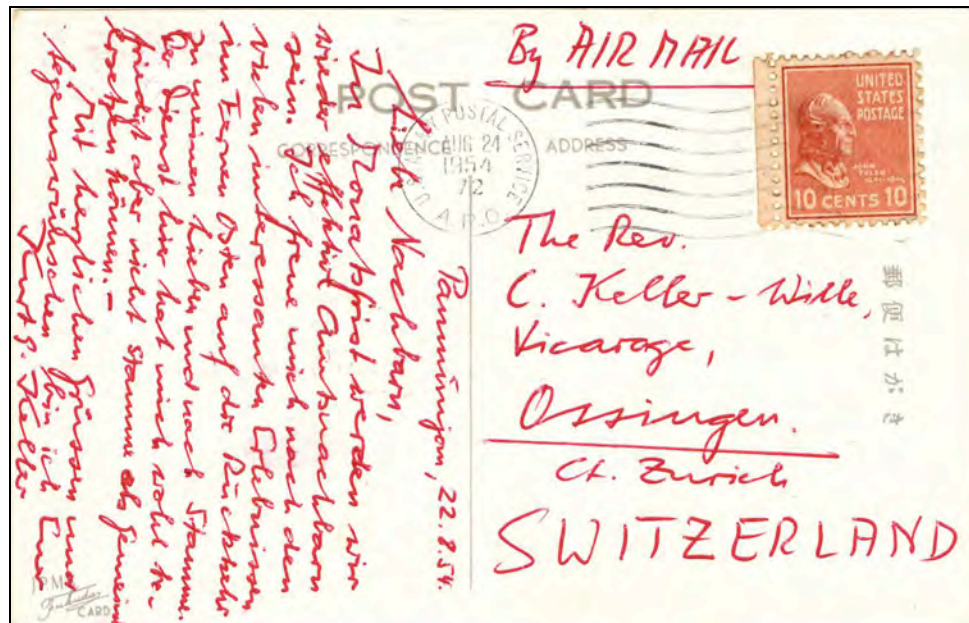 By AIR MAIL
POST CARD
CORRESPONDENCE
ADDRESS
U.S. ARMY POSTAL SERVICE
AUG 24
1954
72
A.P.O.
UNITED
STATES
POSTAGE
JOHN
TYLER
10 CENTS 10
The Rev.
C. Keller-Wille,
Vicarage,
Ossingen.
Ct. Zurich
SWITZERLAND
郵便はがき
Panmünjom, 22.8.54.
Liebe Nachbarn,
In Monatsfrist werden wir
wieder effektiv Amtsnachbarn
sein. Ich freue mich nach den
vielen interessanten Erlebnissen
im Fernen Osten auf die Rückkehr
zu meinen Lieben und nach Stamme.
Der Dienst hier hat mich wohl be-
friedigt aber nicht Stamme als Gemein
ersetzen können.-
Mit herzlichen Grüssen und
Segenswünschen bin ich Euer
Kurt G. Keller
CARD